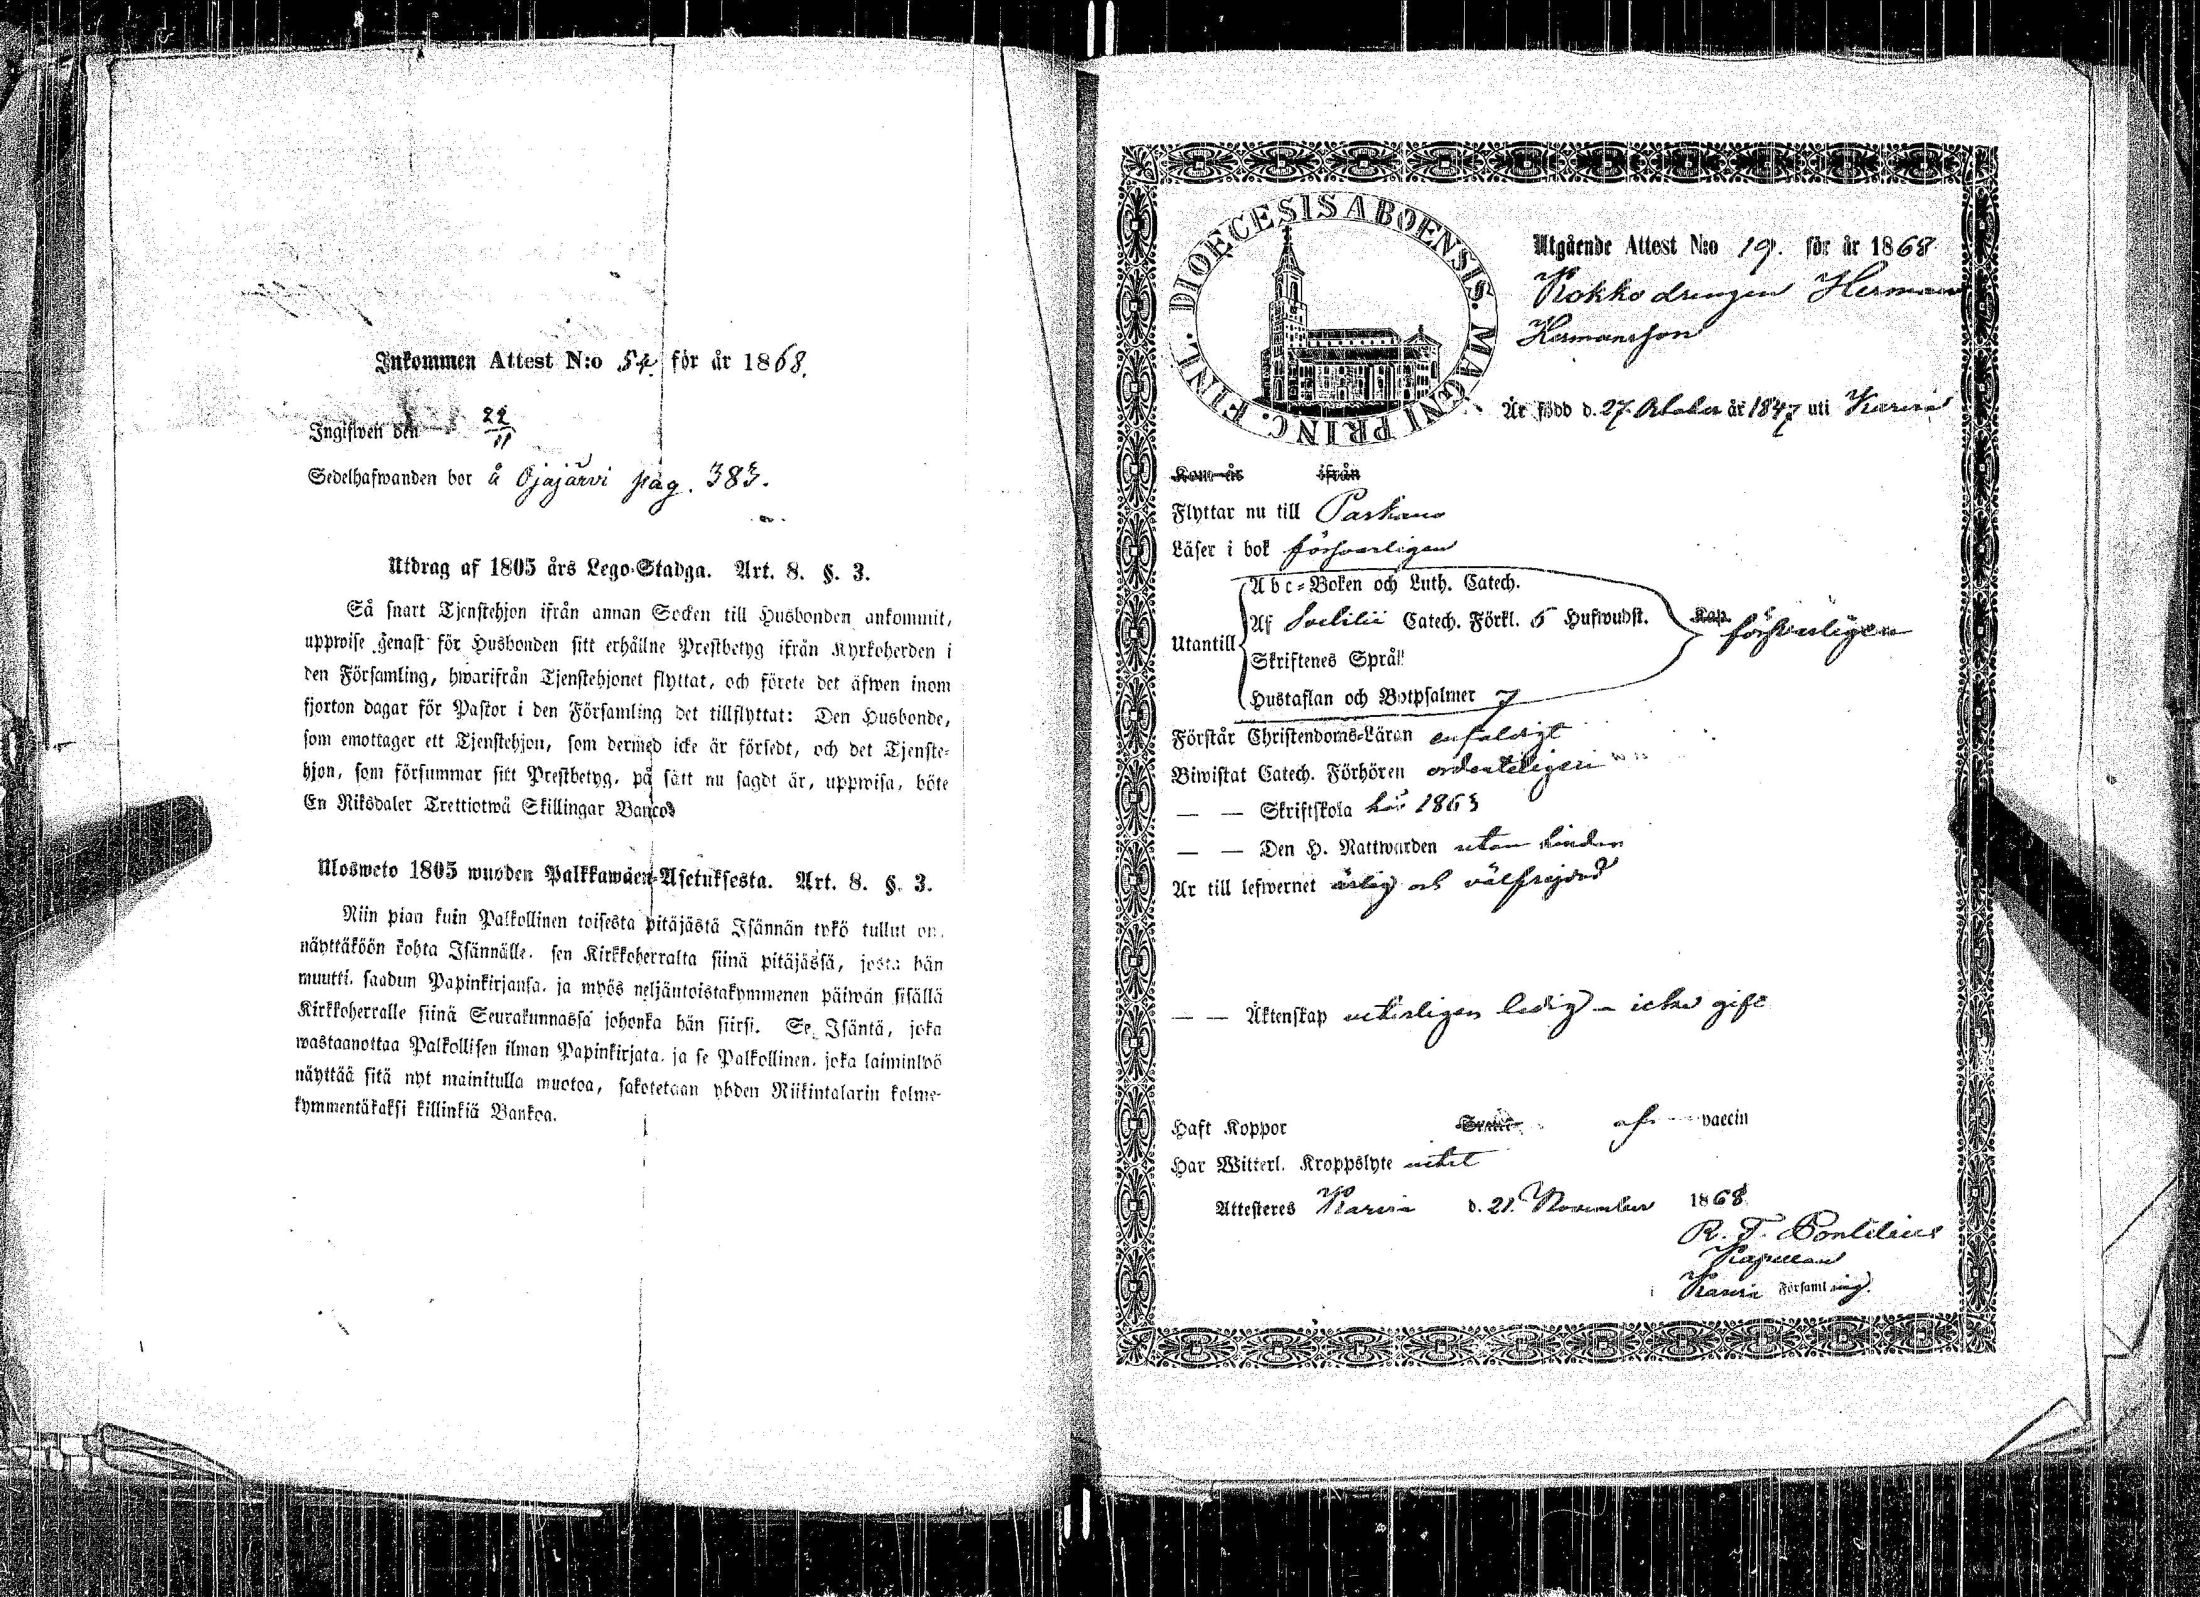 Inkommen Attest N:o 54. för år 1868.
Ingifwen den 22/11
Sedelhafwanden bor å Ojajärvi pag. 383.
Utdrag af 1805 års Lego-Stadga. Art. 8. §. 3.
Så snart Tjenstehjon ifrån annan Socken till Husbonden ankommit,
uppwise genast för Husbonden sitt erhållne Prestbetyg ifrån Kyrkoherden i
den Församling, hwarifrån Tjenstehjonet flyttat, och förete det äfwen inom
fjorton dagar för Pastor i den Församling det tillflyttat: Den Husbonde,
som emottager ett Tjenstehjon, som dermed icke är försedt, och det Tjenste-
hjon, som försummar sitt Prestbetyg, på sätt nu sagdt är, uppwisa, böte
En Riksdaler Trettiotwå Skillingar Banco.
Ulosweto 1805 wuoden Palkkawäen-Asetuksesta. Art. 8. §. 3.
Niin pian kuin Palkollinen toisesta pitäjästä Isännän tykö tullut on,
näyttäköön kohta Isännälle, sen Kirkkoherralta siinä pitäjässä, josta hän
muutti, saadun Papinkirjansa, ja myös neljäntoistakymmenen päiwän sisällä
Kirkkoherralle siinä Seurakunnassa johonka hän siirsi. Se Isäntä, joka
wastaanottaa Palkollisen ilman Papinkirjata, ja se Palkollinen, joka laiminlyö
näyttää sitä nyt mainitulla muotoa, sakotetaan yhden Riikintalarin kolme-
kymmentäkaksi killinkiä Bankoa.
DIOECESIS ABOENSIS. MAGNI PRINC. FINL.
Utgående Attest N:o 19. för år 1868
Kokko drengen Herman
Hermansson
Är född d. 27. October år 1847 uti Karvia
Kom år ifrån
Flyttar nu till Parkano
Läser i bok försvarligen
Abc-Boken och Luth. Catech.
Utantill
Af Svebilii Catech. Förkl. 5 Hufwudst. Kap. försvarligen
Skriftenes Språk
Hustaflan och Botpsalmer 7
Förstår Christendoms-Läran enfaldigt
Biwistat Catech. Förhören ordenteligen
— — Skriftskola här 1863
— — Den H. Nattwarden utan hinder
Är till lefwernet ärlig och välfrejdad
— — Äktenskap veterligen ledig – icke gift
Haft Koppor af vaccin
Har Witterl. Kroppslyte intet
Attesteres Karvia d. 21. November 1868
R. F. Pontelius
Kapellan
i Karvia Församling.